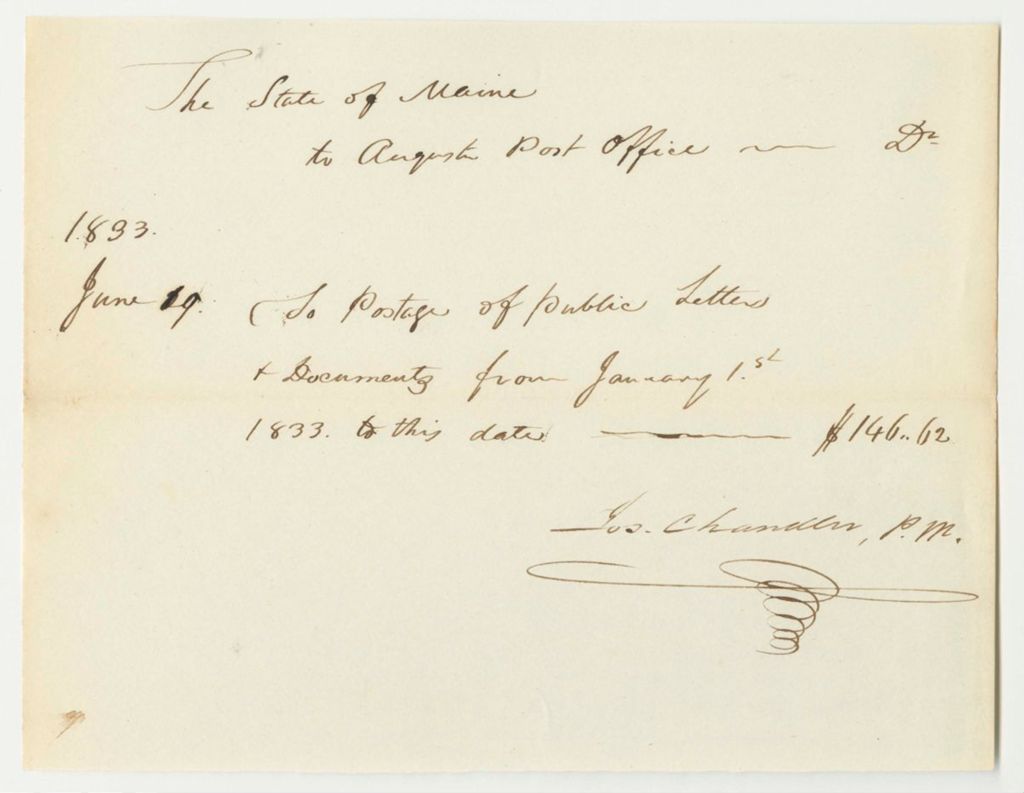 The State of Maine
to Augusta Post Office — Dr
1833.
June 19. To Postage of public Letters
& Documents from January 1.st
1833. to this date — $146..62
Jos. Chandler, P.M.